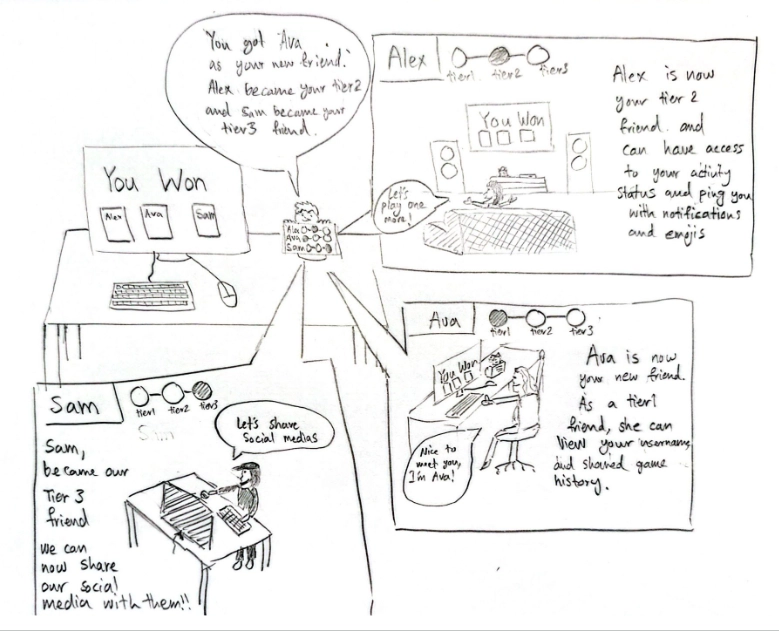 You got Ava
as your new friend.
Alex became your tier2
and Sam became your
tier3 friend.
You Won
Alex
Ava
Sam
Alex
Ava
Sam
Alex
tier1
tier2
tier3
You Won
Let's
play one
more!
Alex is now
your tier 2
friend. and
can have access
to your activity
status and ping you
with notifications
and emojis
Ava
tier1
tier2
tier3
You Won
Nice to
meet you,
I'm Ava!
Ava is now
your new friend.
As a tier1
friend, she can
View your username,
and shared game
history.
Sam
tier1
tier2
tier3
Sam
Let's share
Social medias
Sam,
became our
Tier 3
friend
we can
now share
our social
media with them!!